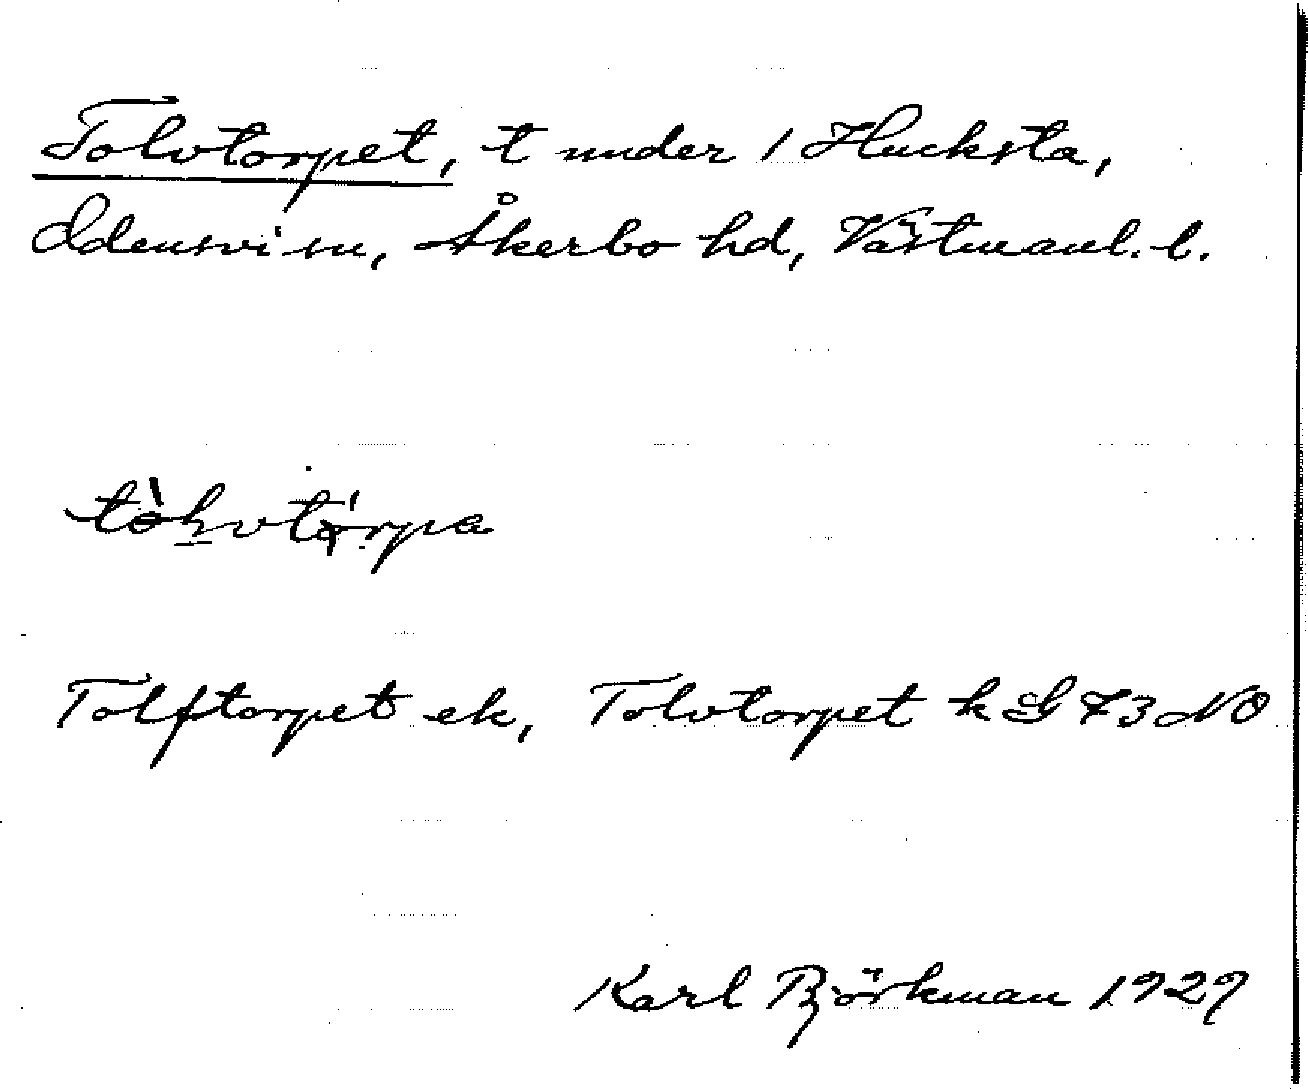 Tolvtorpet, t under 1 Hucksta,
Odensvi sn, Åkerbo hd, Västmanl. l.
Tolftorpet ek, Tolvtorpet k G 73 NO
Karl Björkman 1929